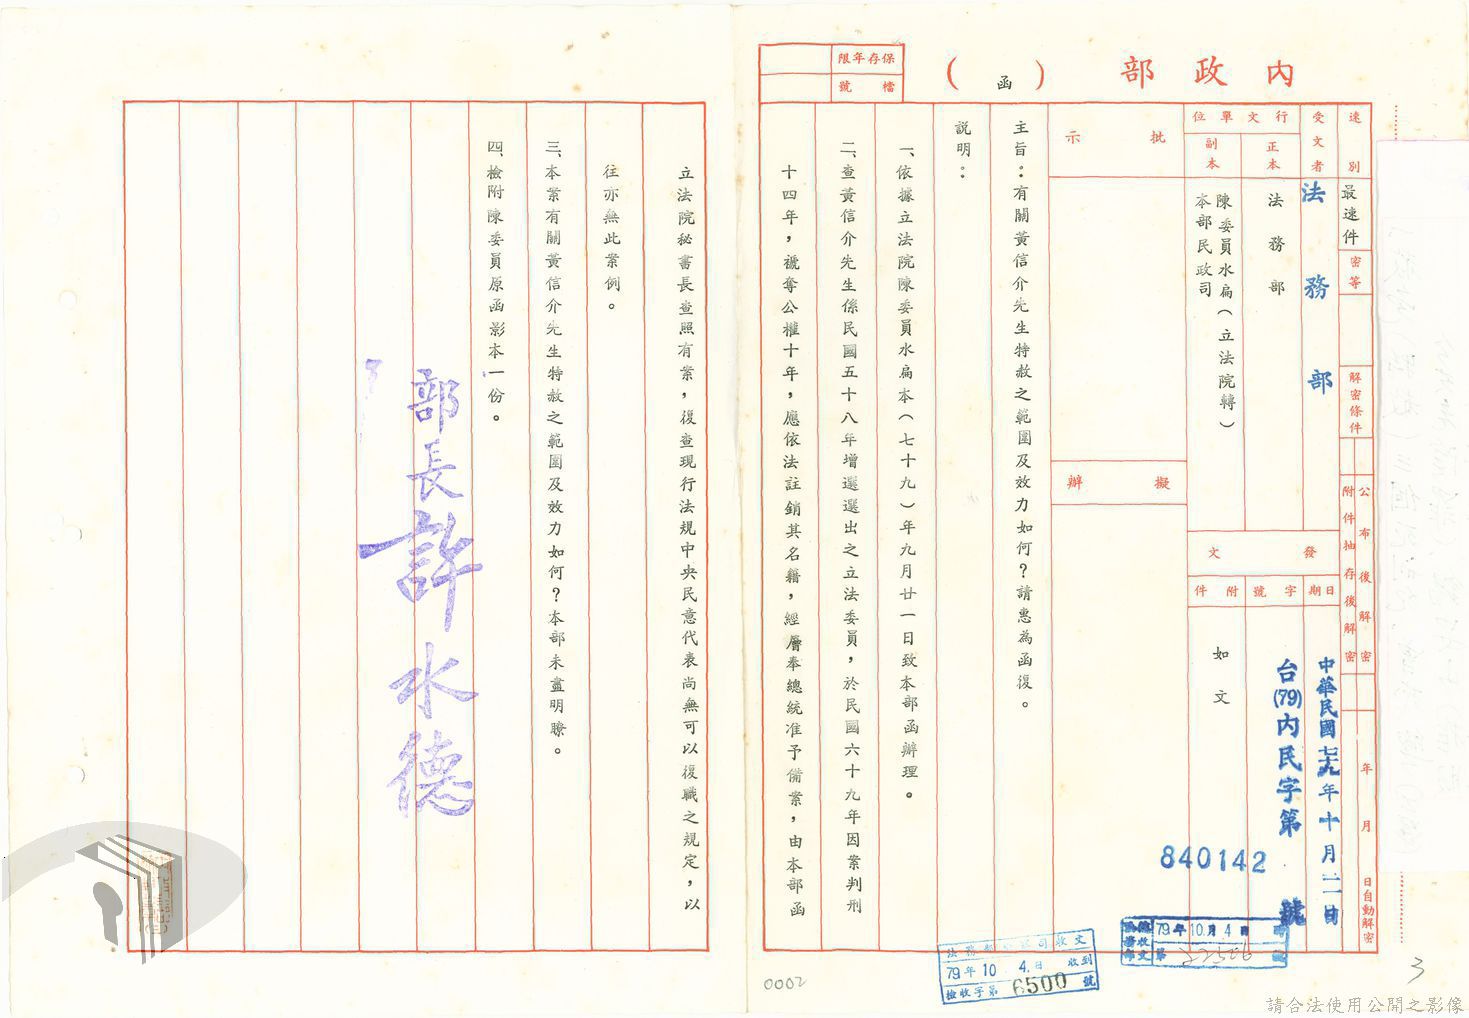 內政部（函）
保存年限
檔號
速別
最速件
密等
解密條件
公布後解密
附件抽存後解密
年月日自動解密
受文者
法務部
行文單位
正本
法務部
副本
陳委員水扁（立法院轉）
本部民政司
發文
日期
中華民國七十九年十月二日
字號
台(79)內民字第840142號
附件
如文
批示
擬辦
主旨：有關黃信介先生特赦之範圍及效力如何？請惠為函復。
說明：
一、依據立法院陳委員水扁本（七十九）年九月廿一日致本部函辦理。
二、查黃信介先生係民國五十八年增選選出之立法委員，於民國六十九年因案判刑
十四年，褫奪公權十年，應依法註銷其名籍，經層奉總統准予備案，由本部函
立法院秘書長查照有案，復查現行法規中央民意代表尚無可以復職之規定，以
往亦無此案例。
三、本案有關黃信介先生特赦之範圍及效力如何？本部未盡明瞭。
四、檢附陳委員原函影本一份。
部長許水德
79年10月4日
第22506號
司收文
79年10 4.日 收到
檢收字第6500號
0002
3
請合法使用公開之影像